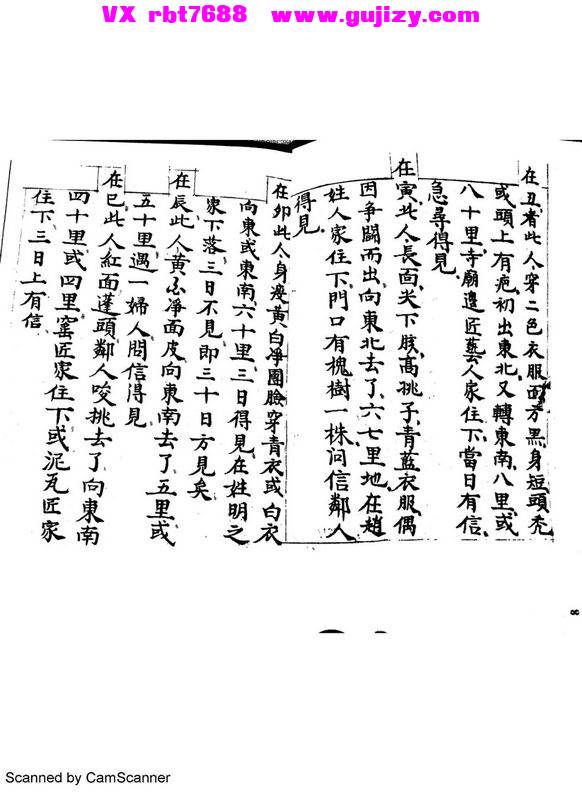 VX rbt7688 www.gujizy.com
在丑者此人穿二色衣服面方黑身短頭禿
或頭上有疤初出東北又轉東南八里或
八十里寺廟邊匠藝人家住下當日有信
急尋得見
在寅此人長面尖下肢高挑子青藍衣服偶
因爭鬪而出向東北去了六七里地在趙
姓人家住下門口有槐樹一株问信鄰人
得見
在卯此人身瘦黃白凈團臉穿青衣或白衣
向東或東南六十里三日得見在姓明之
家下落三日不見即三十日方見矣
在辰此人黃白凈面皮向東南去了五里或
五十里遇一婦人問信得見
在巳此人紅面蓬頭鄰人咬挑去了向東南
四十里或四里窰匠家住下或泥瓦匠家
住下三日上有信
8
Scanned by CamScanner